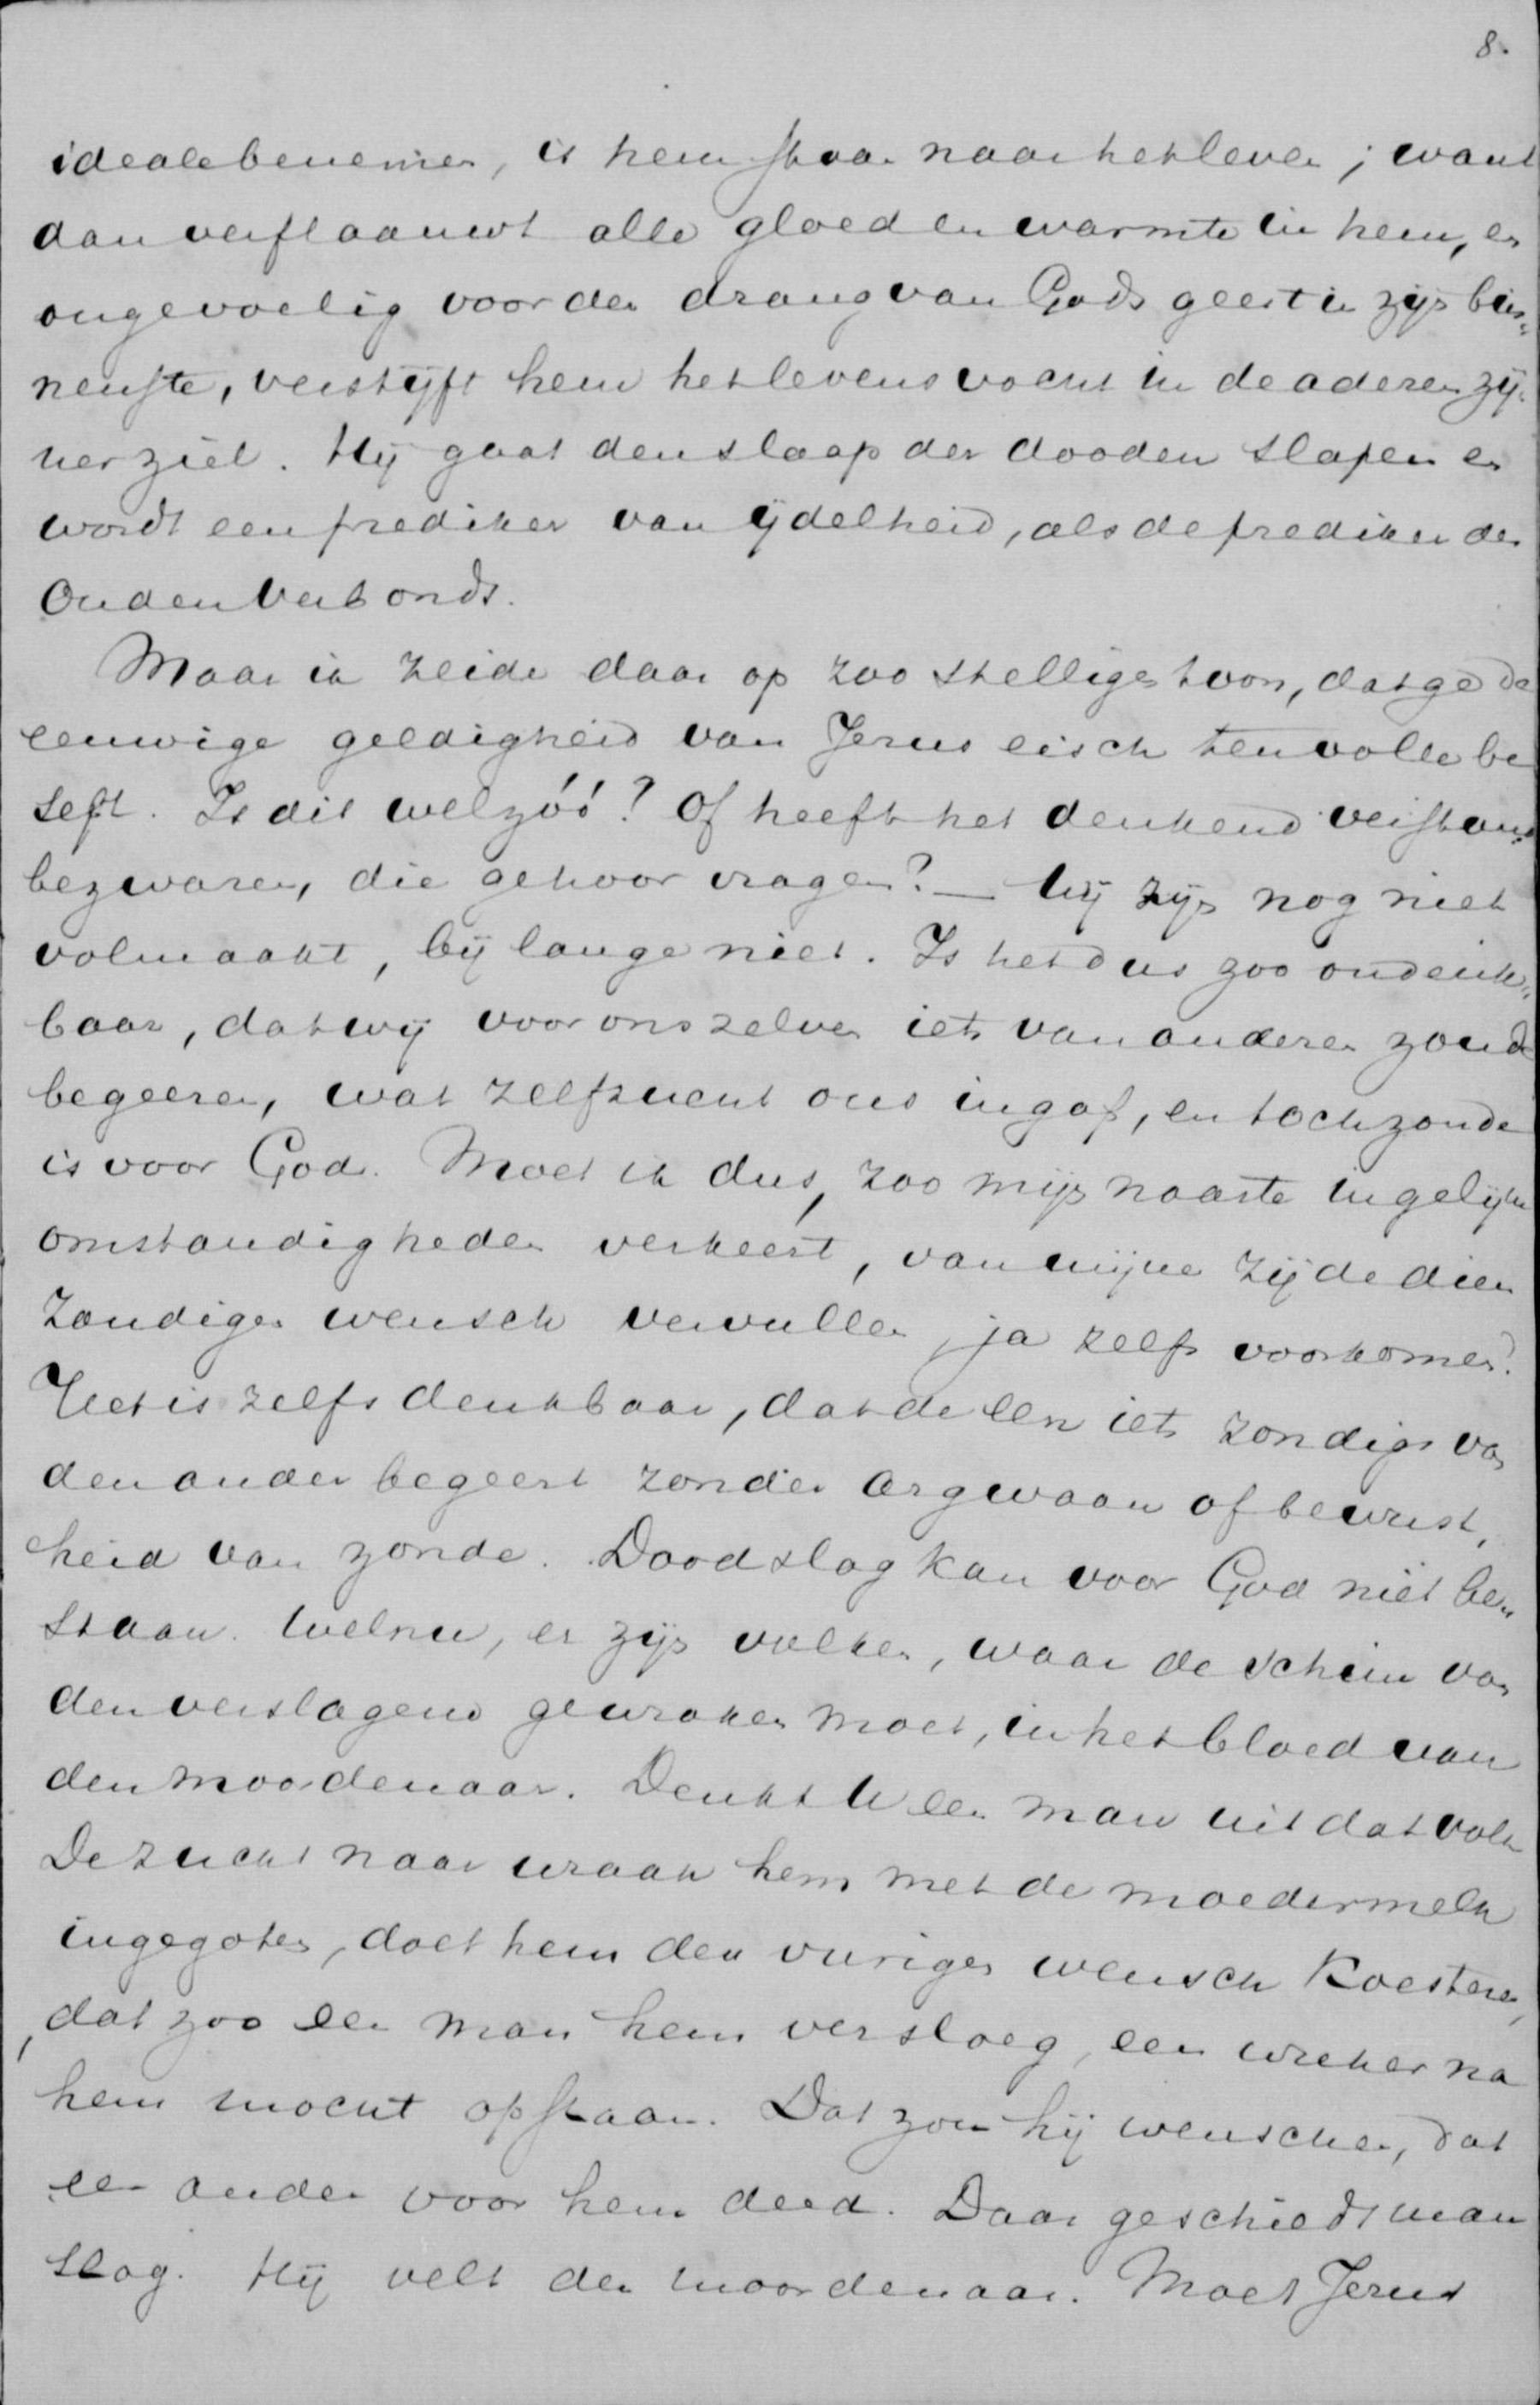 8.
ideale benemen, is hem staan naar het leven; want
dan verflaauwt alle gloed en warmte in hem, en
ongevoelig voor den drang van Gods geest in zijn bin„
nenste, verstijft hem het levensvocht in de aderen zij„
ner ziel. Hij gaat den slaap der dooden slapen en
wordt een prediker van ijdelheid, als de prediker des
Ouden Verbonds.
Maar ik zeide daar op zoo stelligen toon, dat ge de
eeuwige geldigheid van Jezus eisch ten volle be
seft. Is dit wel zóó? Of heeft het denkend verstand
bezwaren, die gehoor vragen? — Wij zijn nog niet
volmaakt, bij lange niet. Is het dus zoo ondenk„
baar, dat wij voor ons zelven iets van anderen zoude
begeeren, wat zelfzucht ons ingaf, en toch zonde
is voor God. Moet ik dus, zoo mijn naaste in gelijke
omstandigheden verkeert, van mijne zijde dien
zondigen wensch vervullen, ja zelfs voorkomen?
Het is zelfs denkbaar, dat de een iets zondigs van
den ander begeert zonder argwaan of bewust„
heid van zonde. Doodslag kan voor God niet be„
staan. Welnu, er zijn volken, waar de schim van
den verslagene gewroken moet, in het bloed van
den moordenaar. Denkt U een man uit dat volk
De zucht naar wraak hem met de moedermelk
ingegoten, doet hem den vurigen wensch koesteren,
, dat zoo een man hem versloeg, een wreker na
hem mocht opstaan. Dat zou hij wenschen, dat
een ander voor hem deed. Daar geschiedt man
slag. Hij velt den moordenaar. Moet Jezus